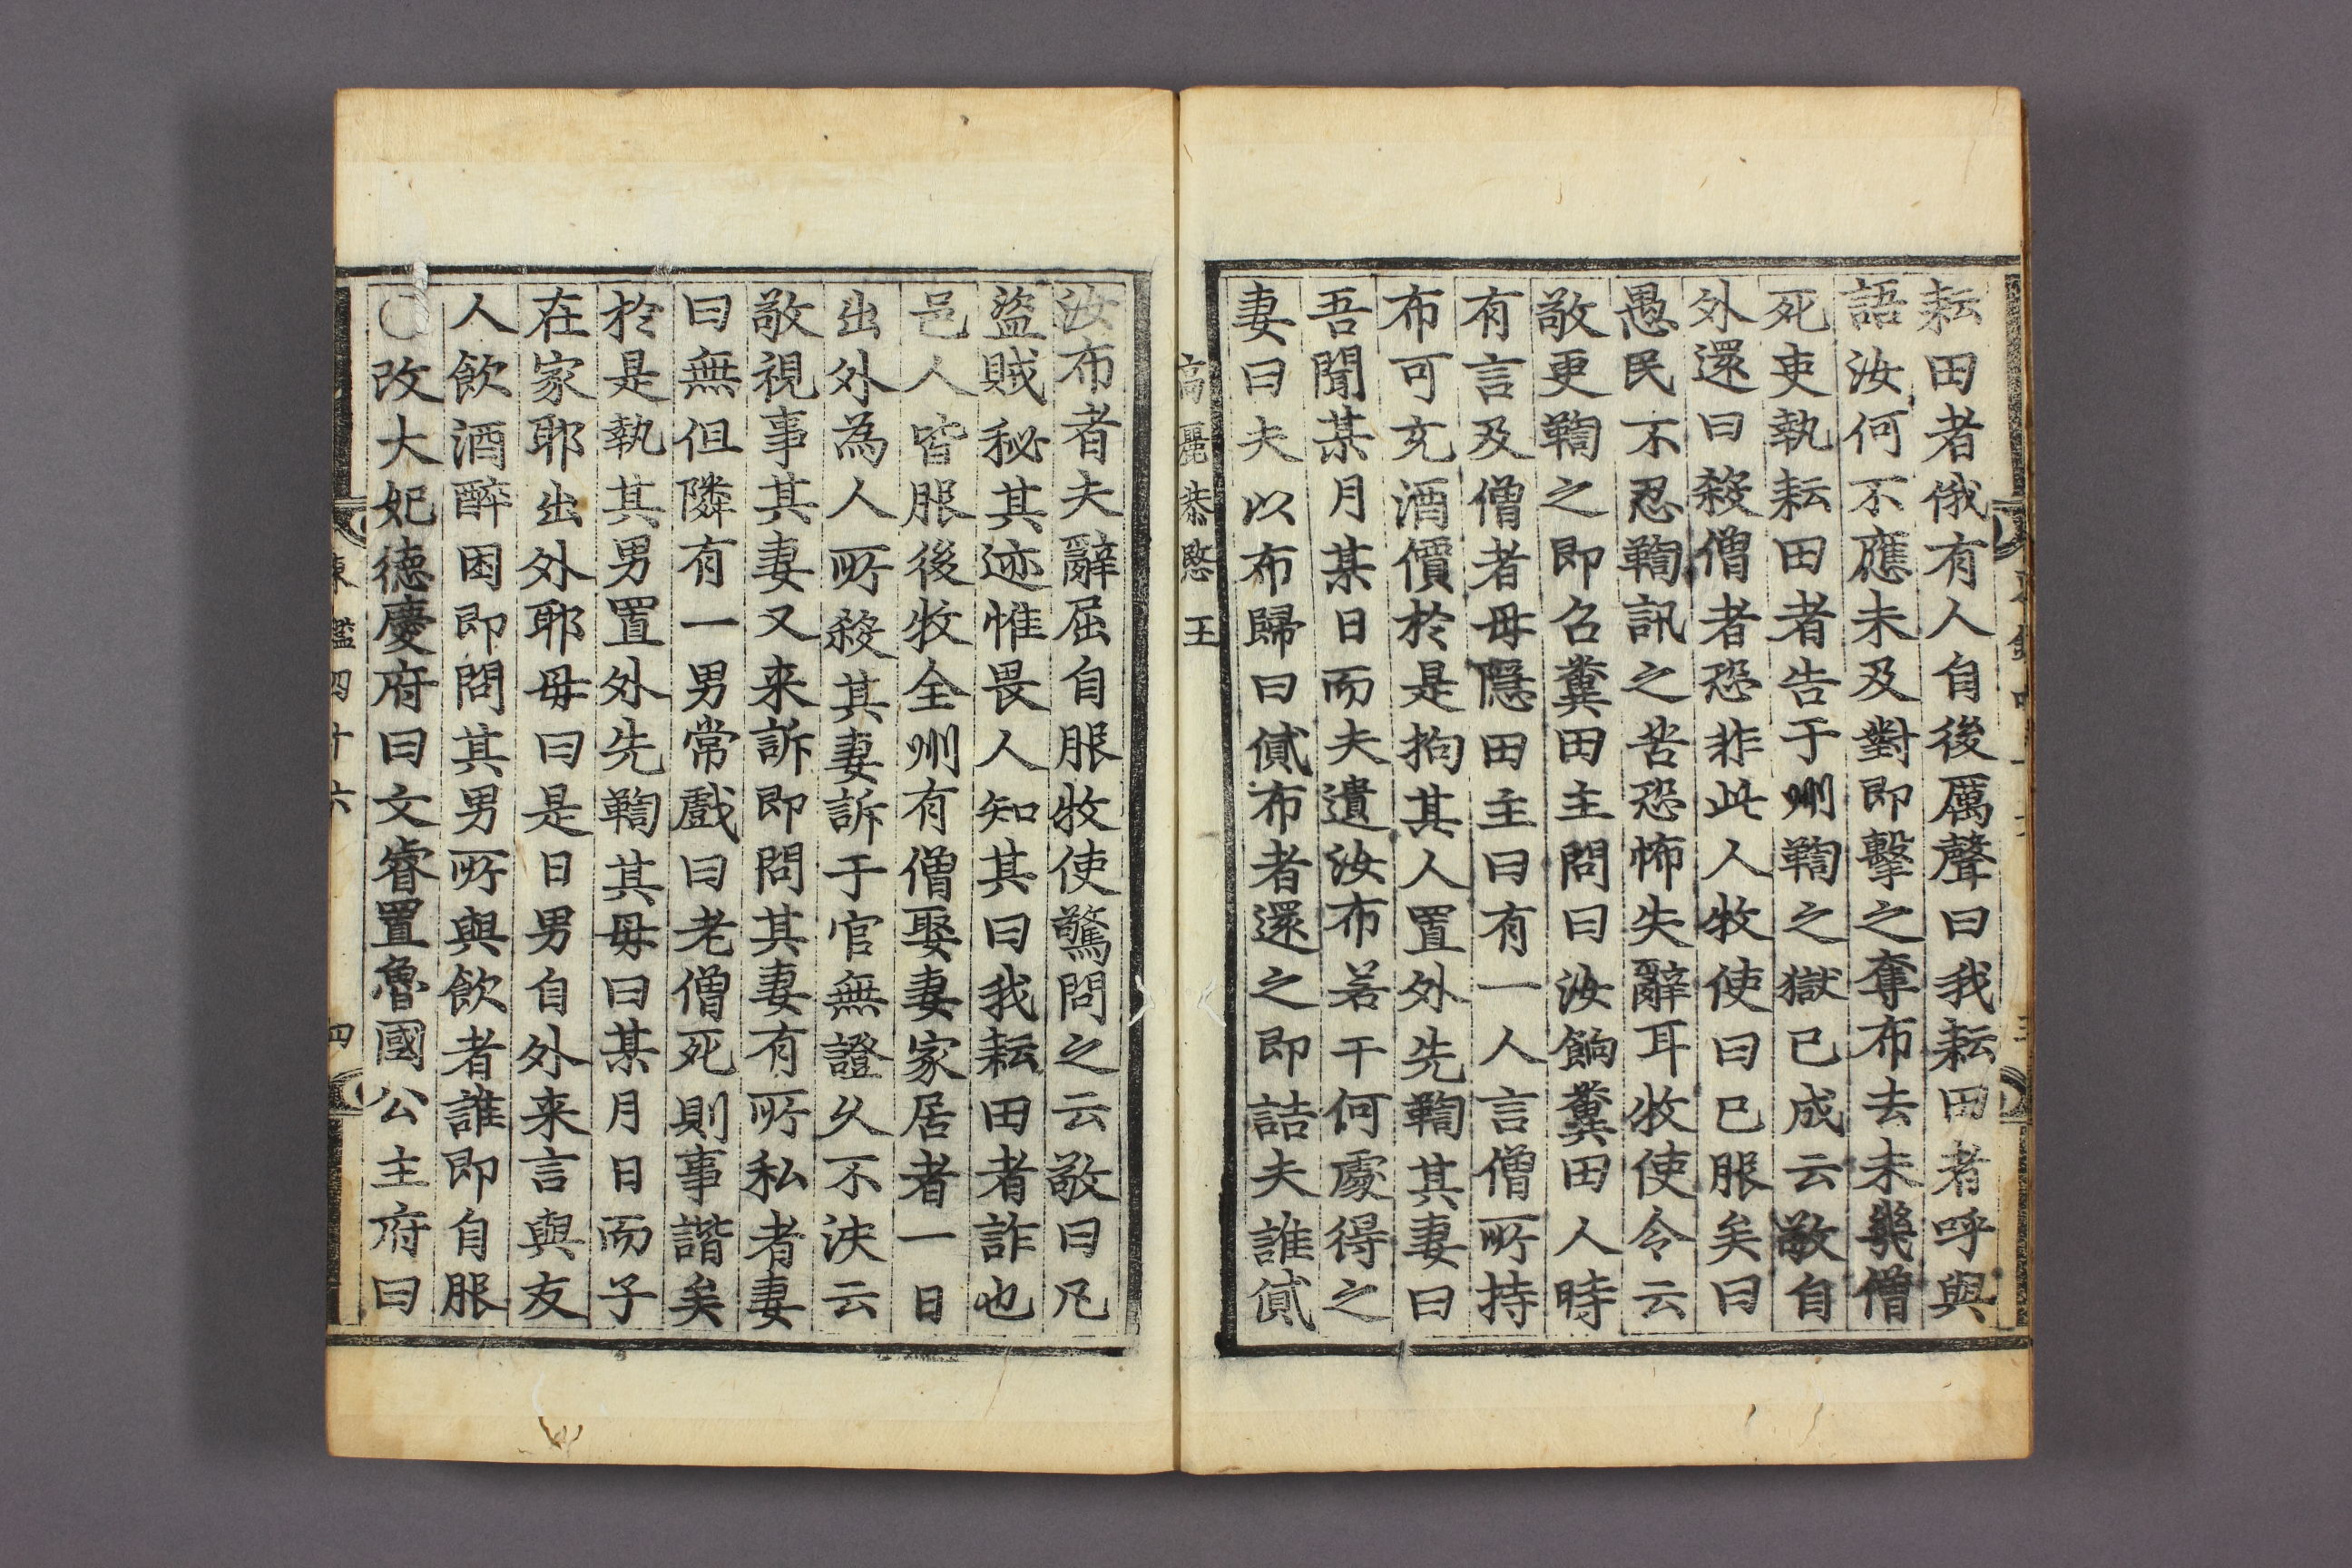 耘田者俄有人自後厲聲曰我耘田者呼與
語汝何不應未及對即擊之奪布去未幾僧
死吏執耘田者告于州鞫之獄已成云敬自
外還曰殺僧者恐非此人牧使曰已服矣曰
愚民不忍鞫訊之苦恐怖失辭耳牧使令云
敬更鞫之即召糞田主問曰汝餉糞田人時
有言及僧者毋隱田主曰有一人言僧所持
布可充酒價於是拘其人置外先鞫其妻曰
吾聞某月某日而夫遺汝布若干何處得之
妻曰夫以布歸曰貸布者還之即詰夫誰貸
高麗恭愍王
汝布者夫辭屈自服牧使驚問之云敬曰凡
盜賊秘其迹惟畏人知其曰我耘田者詐也
邑人皆服後牧全州有僧娶妻家居者一日
出外為人所殺其妻訴于官無證久不決云
敬視事其妻又来訴即問其妻有所私者妻
曰無但隣有一男常戲曰老僧死則事諧矣
於是執其男置外先鞫其母曰某月日而子
在家耶出外耶母曰是日男自外来言與友
人飲酒醉困即問其男所與飲者誰即自服
〇改大妃德慶府曰文睿置魯國公主府曰
東鑑四十六 四